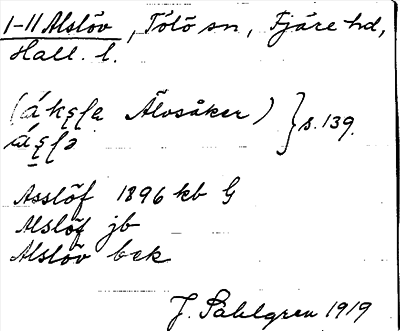 1-11 Alslöv, Tölö sn, Fjäre hd,
Hall. l.
(á kʂʅa Älvsåker) } s. 139.
Asslöf 1896 kb G
Alslöf jb
Alslöv bek
J. Sahlgren 1919